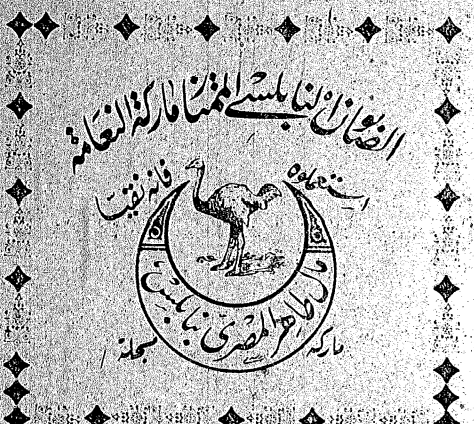 الصابون النابلسي الممتاز ماركة النعامة
استعملوه فانه نقيا
طاهر المصري بنابلس
ماركة مسجلة